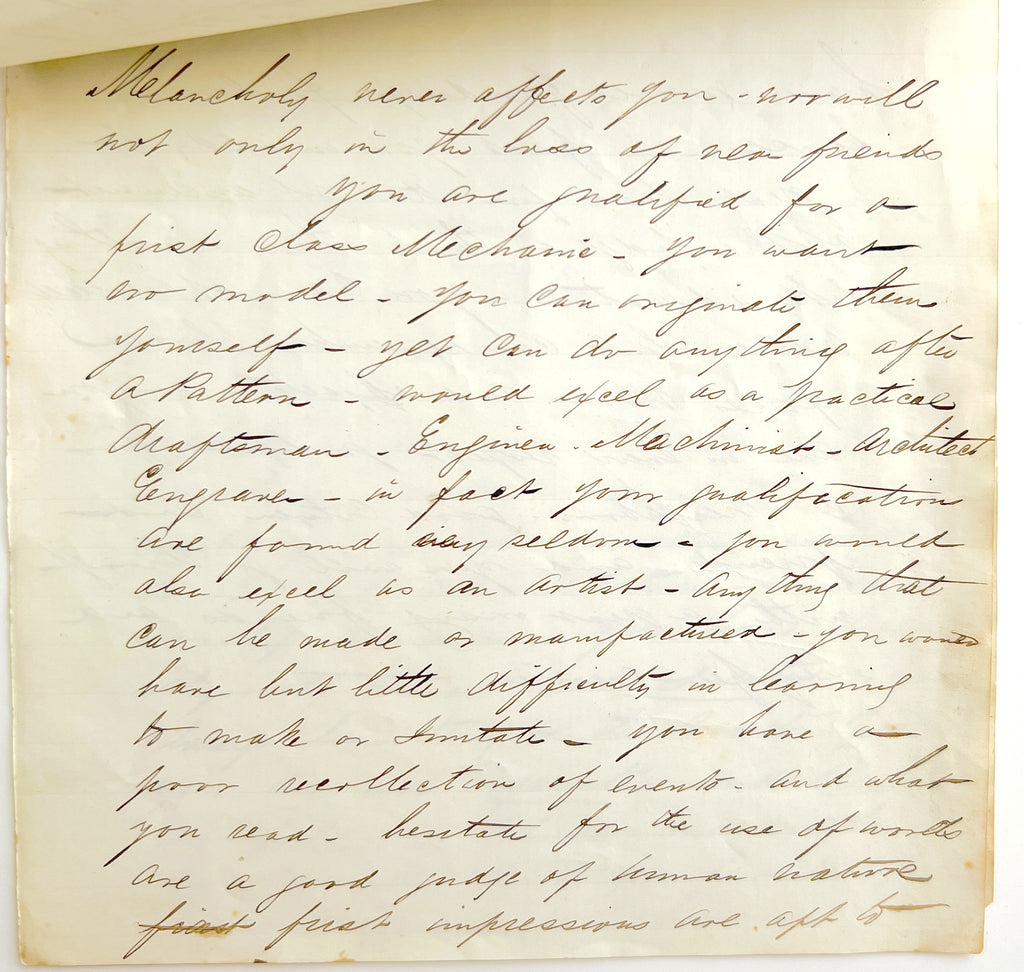 Melancholy never affects you - nor will
not only in the loss of near friends
you are qualified for a
first class Mechanic - you want
no model - you can originate them
yourself - yet can do anything after
a Pattern - would excel as a practical
draftsman - Enginer - Machinist - Architect
Engraver - in fact your qualification
are found very seldom - you would
also excel as an artist - any thing that
can be made or manufactured - you would
have but little difficulty in learning
to make or Imitate - you have a
poor recollection of events - and what
you read - hesitate for the use of words
are a good judge of human nature
first first impressions are apt to